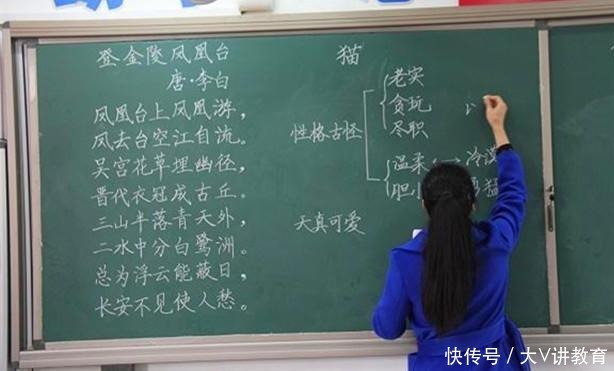 登金陵凤凰台
唐·李白
凤凰台上凤凰游，
凤去台空江自流。
吴宫花草埋幽径，
晋代衣冠成古丘。
三山半落青天外，
二水中分白鹭洲。
总为浮云能蔽日，
长安不见使人愁。
猫
性格古怪
老实
贪玩
尽职
温柔 冷漠
胆小 勇猛
天真可爱
快传号/大V讲教育